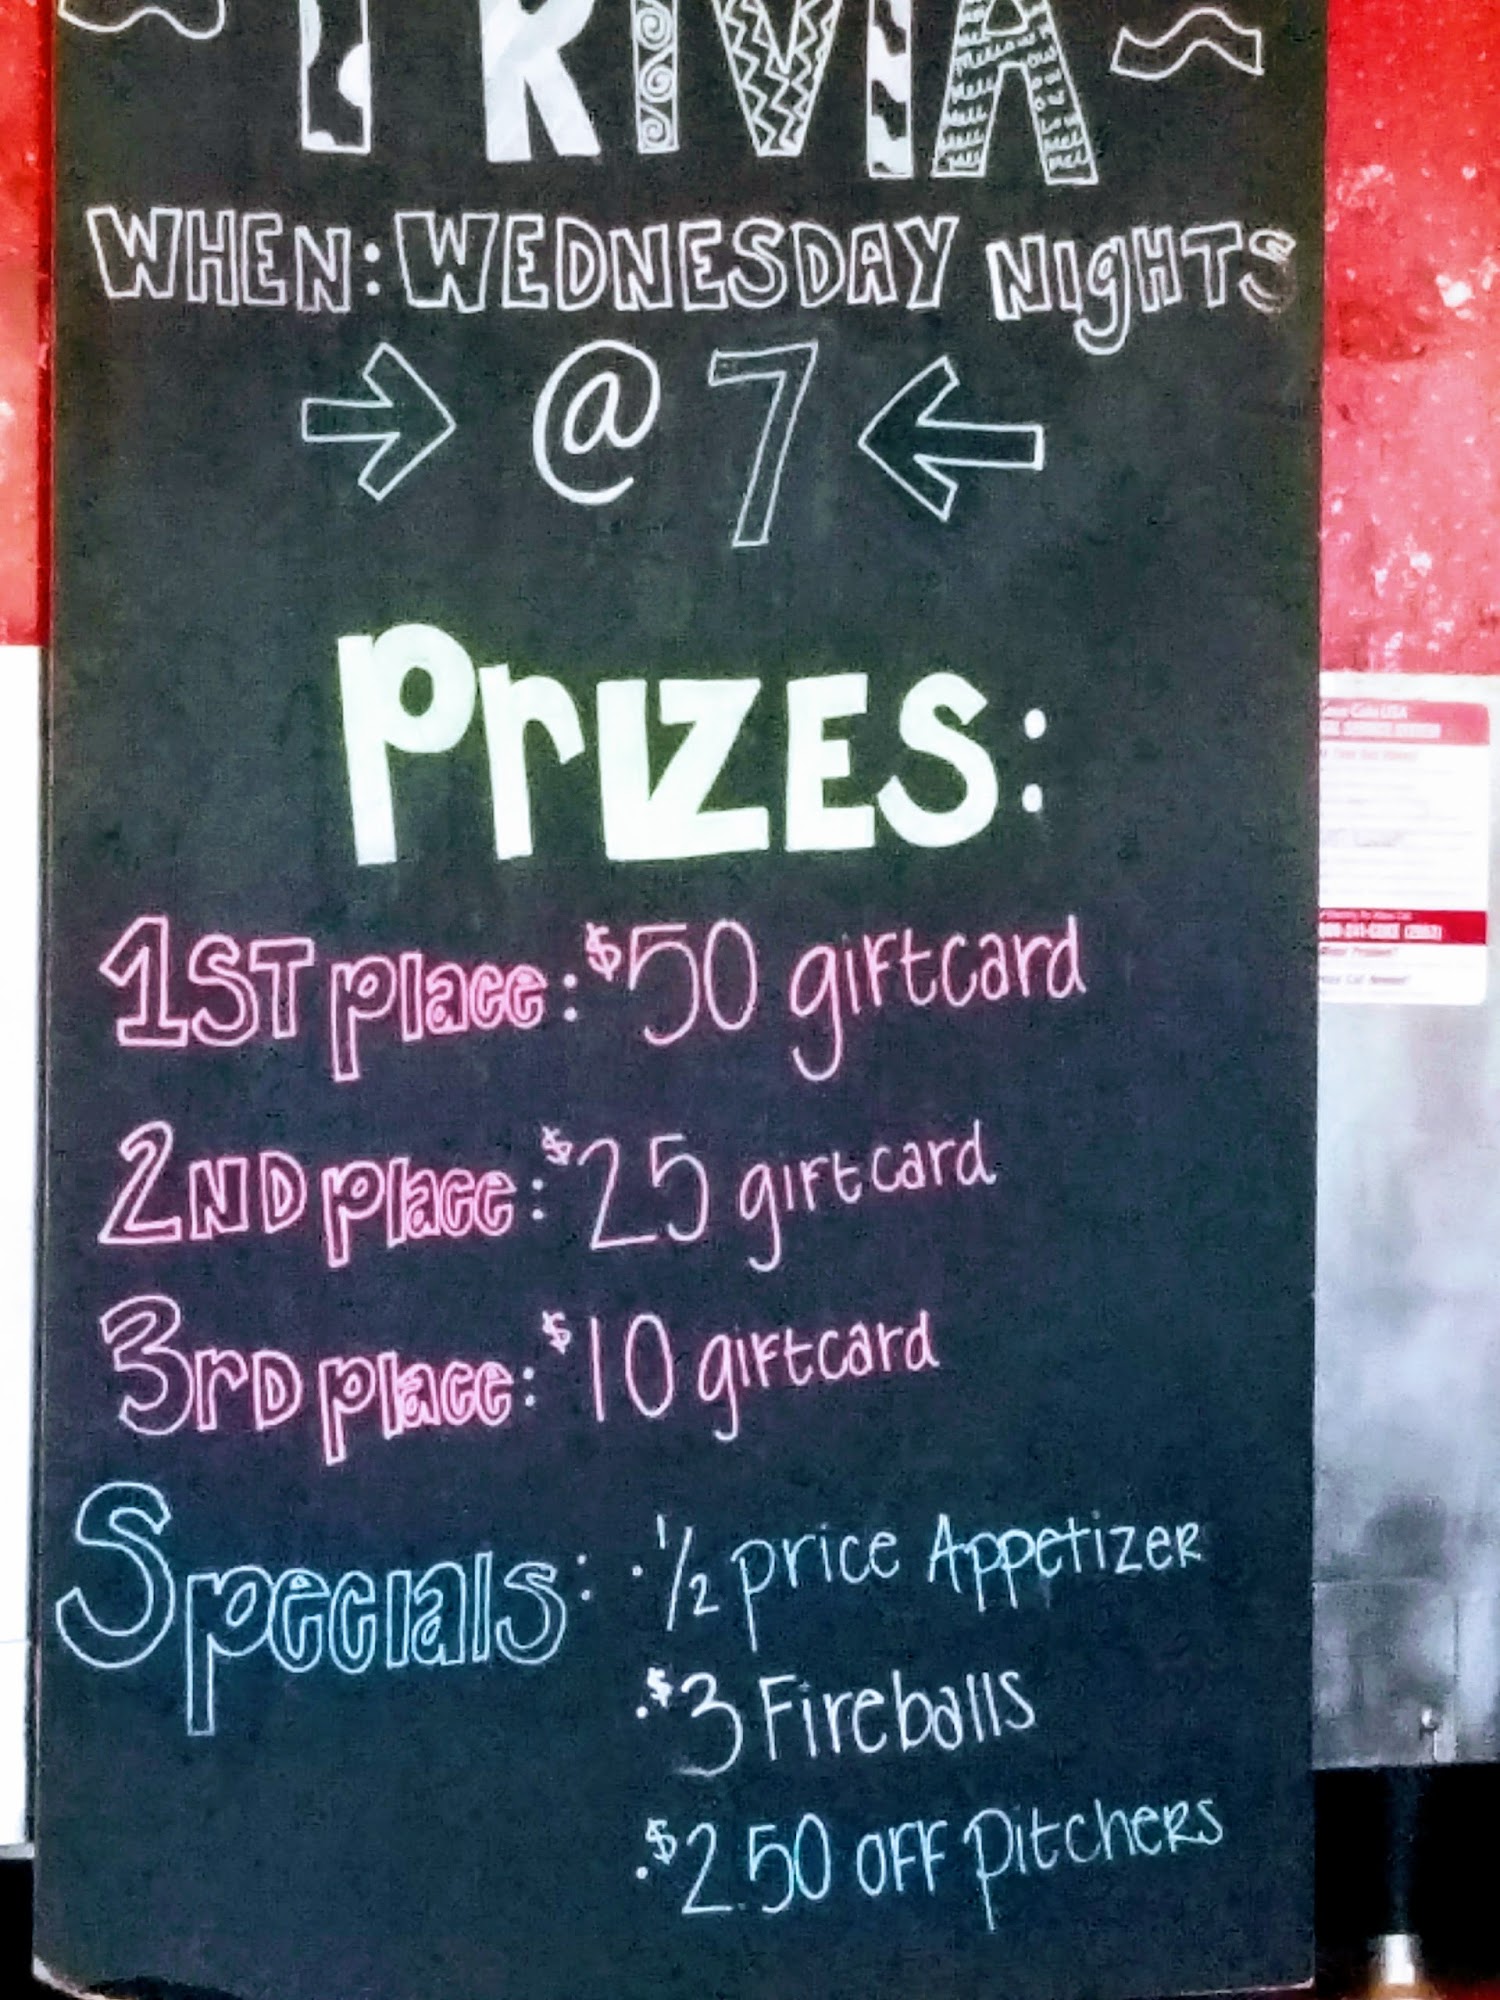 TRIVIA
WHEN: WEDNESDAY NIgHTS
@ 7
PrIZES:
1ST place: $50 giftcard
2ND place: $25 giftcard
3rD place: $10 giftcard
Specials: · 1/2 price Appetizer
· $3 Fireballs
· $2.50 OFF Pitchers